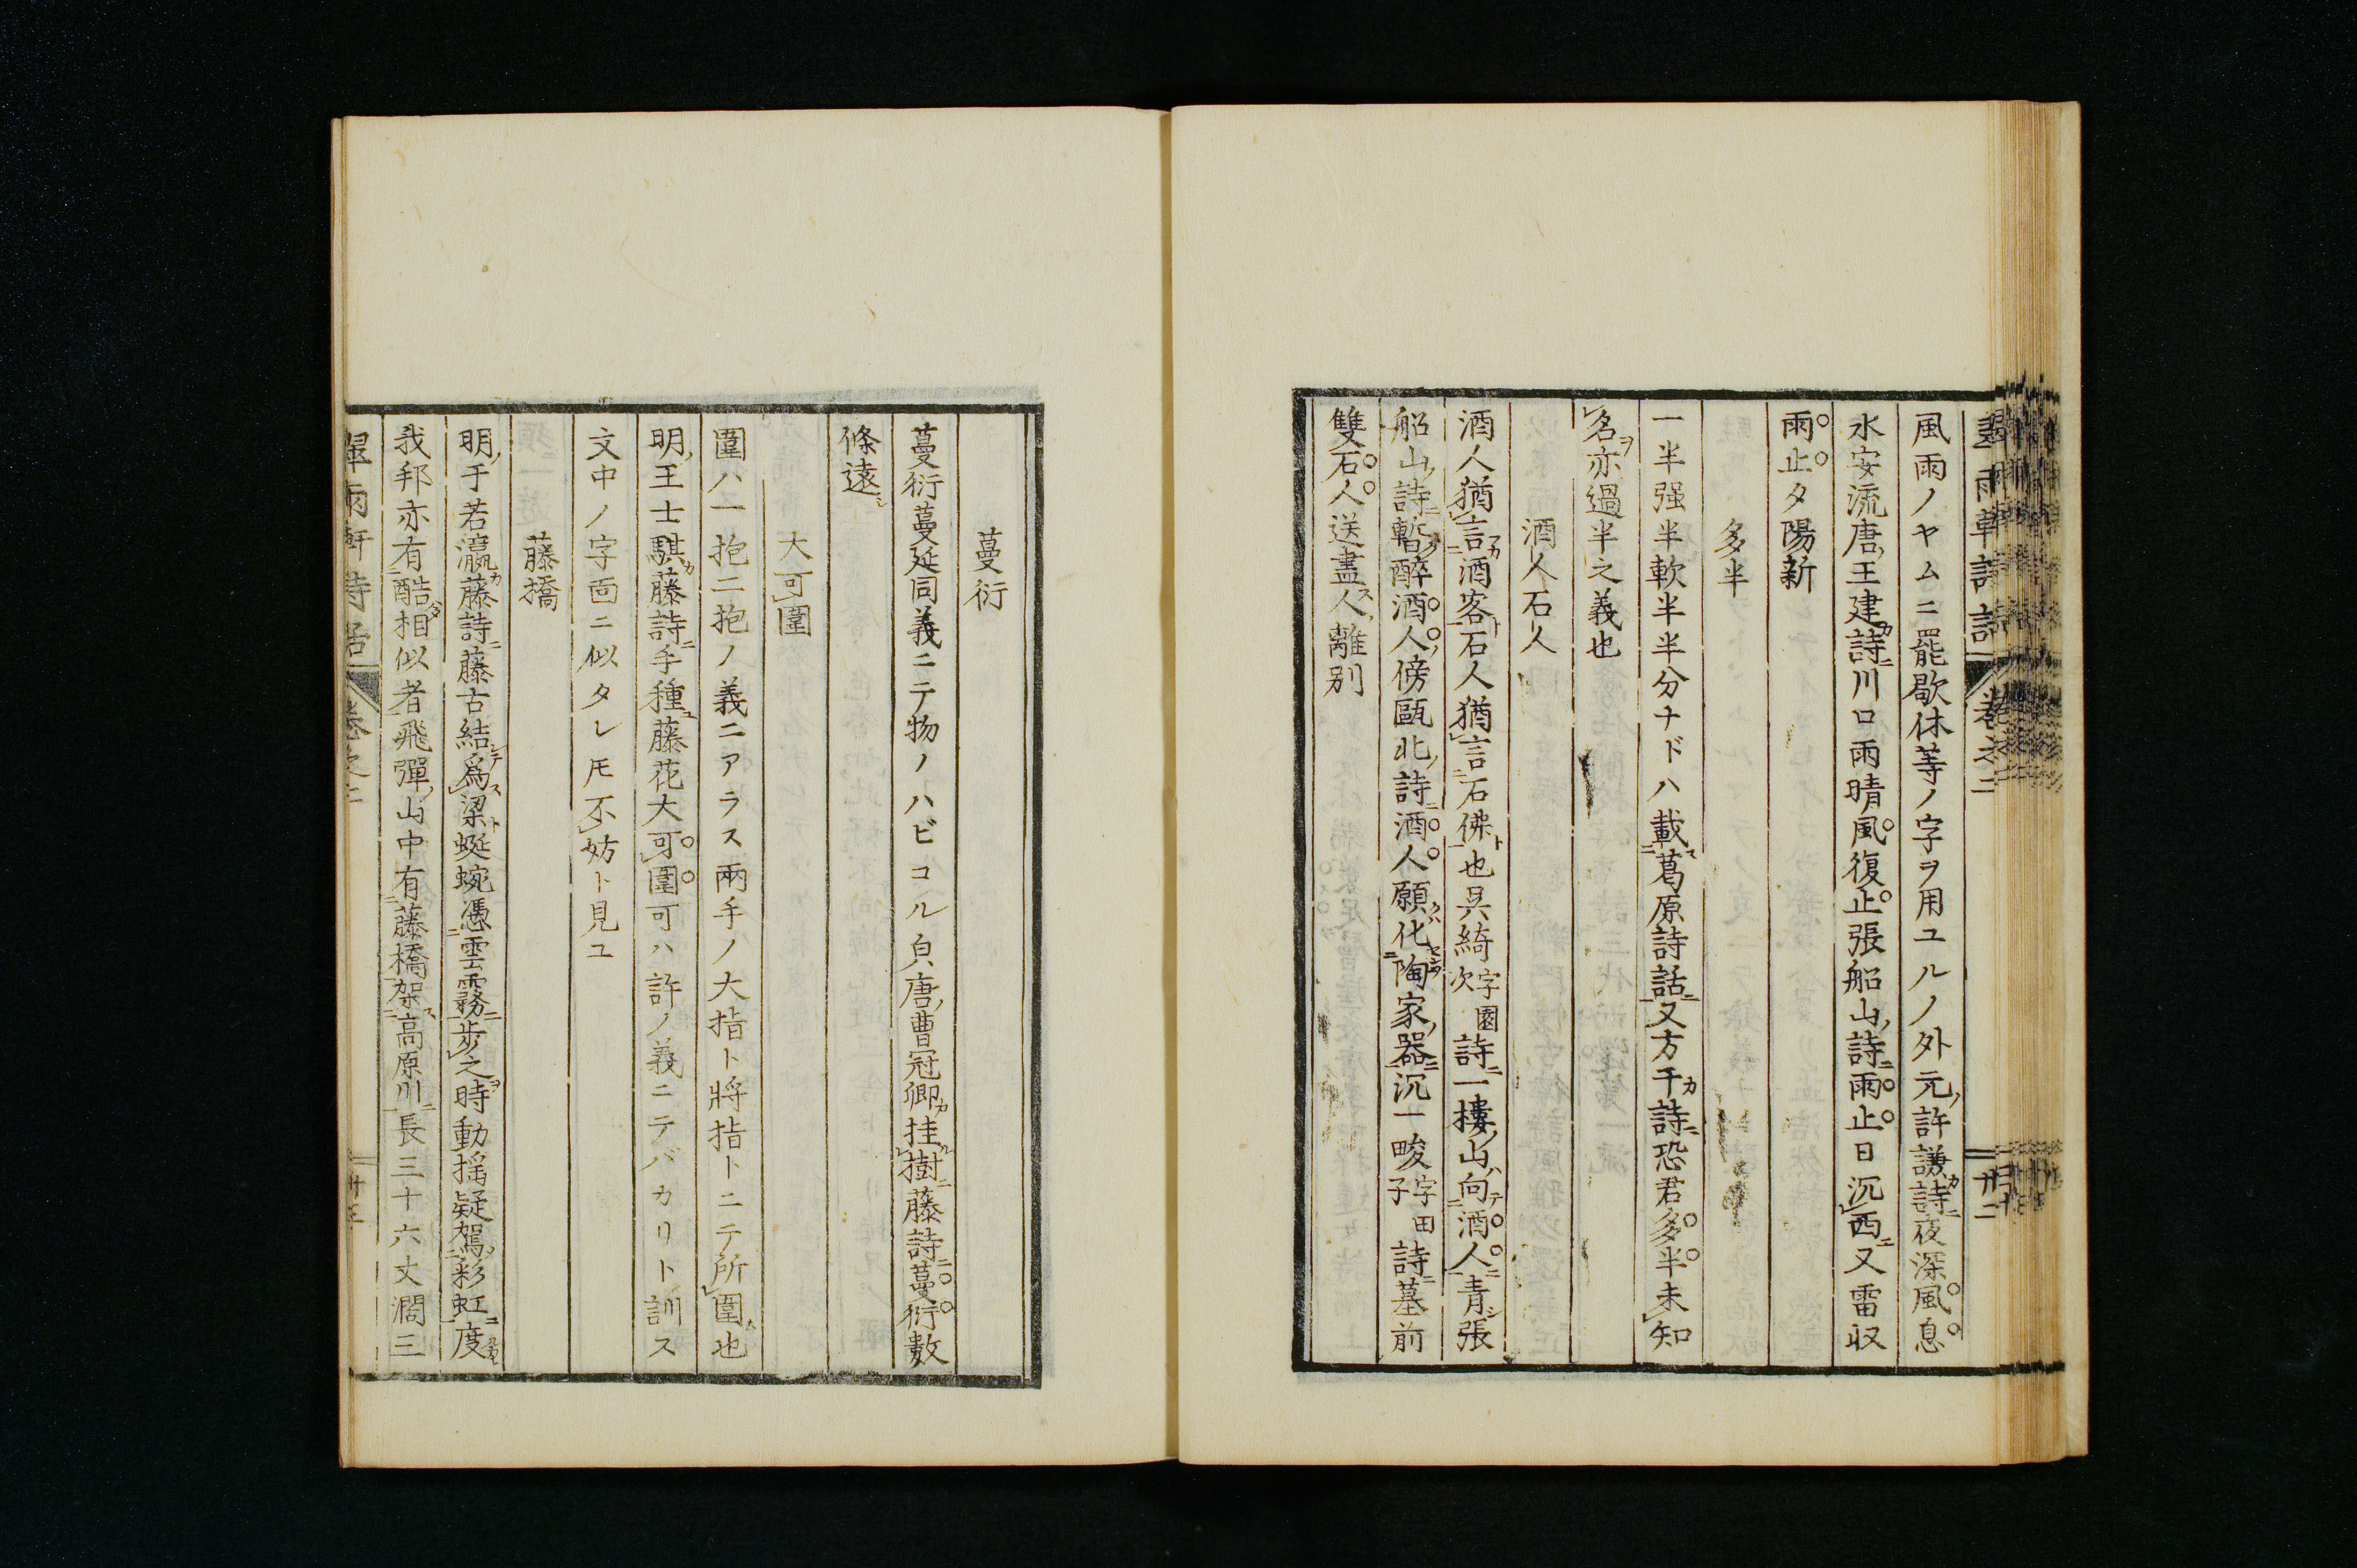 風雨ノヤムニ罷歇休等ノ字ヲ用ユルノ外元ノ許謙カ詩ニ夜深風息
水安流唐ノ王建カ詩ニ川口雨晴風復止張船山ノ詩ニ雨止日沉西ニ又雷収
雨止夕陽新
多半
一半强半軟半半分ナドハ載葛原詩話ニ又方干カ詩ニ恐君多半未知
名ヲ亦過半之義也
酒人石人
酒人猶言酒客ト石人猶言石佛ト也呉綺字園次詩ニ一樓ノ山ハ向テ酒人ニ青シ張
船山ノ詩ニ暫ク醉酒人ノ傍甌北ノ詩ニ酒人願クハ化陶家ノ器ニ沉一畯字田子詩ニ墓前
雙石人送盡人ノ離別
蔓衍
蔓衍蔓延同義ニテ物ノハビコル㒵唐ノ曹冠卿カ挂樹ニ藤詩ニ蔓衍數
條遠シ
大可圍
圍ハ一抱二抱ノ義ニアラス兩手ノ大指ト將指トニテ所圍也
明ノ王士騏カ藤詩ニ手種藤花大可圍可ハ許ノ義ニテバカリト訓ス
文中ノ字面ニ似タレ𪜈不妨ト見ユ
藤橋
明ノ于若瀛カ藤詩ニ藤古結テ爲ス梁ト蜒蜿憑雲霧ニ歩之ヲ時動揺疑駕彩虹ニ度
我邦亦有酷タ相似者飛彈ノ山中有藤橋架ス高原川ニ長三十六丈濶三